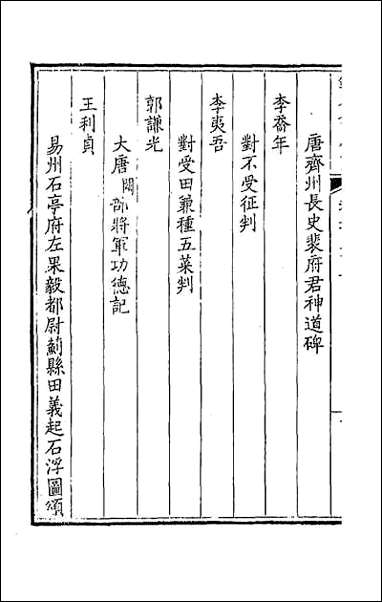 唐齊州長史裴府君神道碑
李喬年
對不受征判
李夷吾
對受田兼種五菜判
郭謙光
大唐闕部將軍功德記
王利貞
易州石亭府左果毅都尉薊縣田義起石浮圖頌